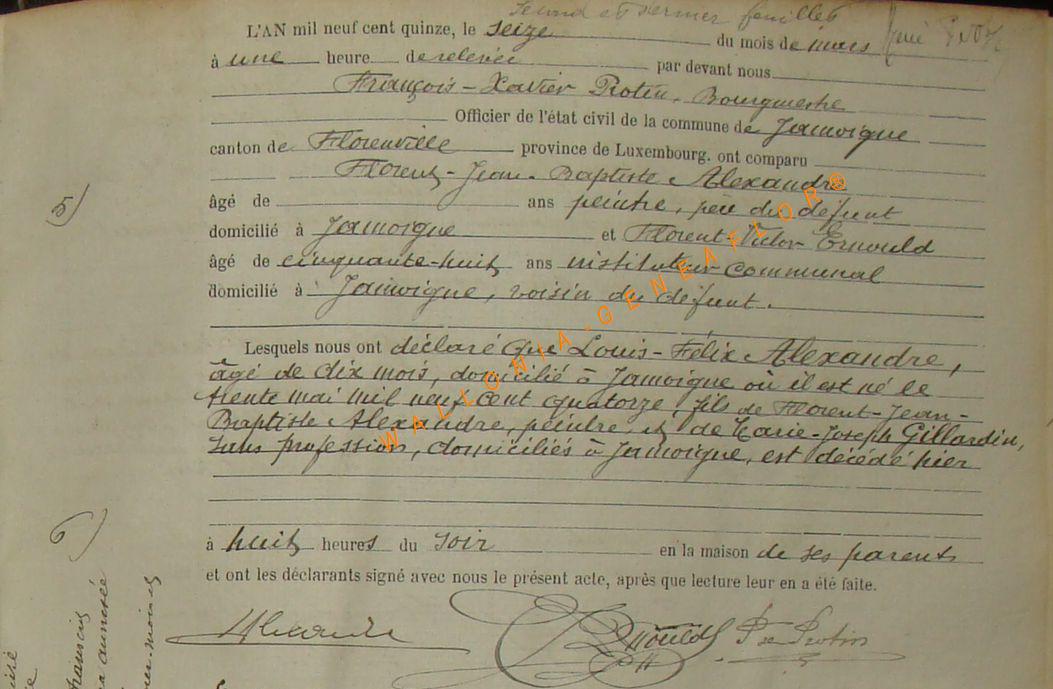 second et dernier feuillet
L'AN mil neuf cent quinze, le seize du mois de mars
à une heure de relevée par devant nous
François-Xavier Protin, Bourgmestre
Officier de l'état civil de la commune de Jamoigne
canton de Florenville province de Luxembourg. ont comparu
Florent-Jean-Baptiste Alexandre
5)
âgé de ans peintre, père du défunt
domicilié à Jamoigne et Florent-Victor Ernould
âgé de cinquante-huit ans instituteur communal
domicilié à Jamoigne, voisin du défunt.
Lesquels nous ont déclaré que Louis-Félix Alexandre,
âgé de dix mois, domicilié à Jamoigne où il est né le
trente mai mil neuf cent quatorze, fils de Florent-Jean-
Baptiste Alexandre, peintre et de Marie-Joseph Gillardin,
sans profession, domiciliés à Jamoigne, est décédé hier
6)
à huit heures du soir en la maison de ses parents
et ont les déclarants signé avec nous le présent acte, après que lecture leur en a été faite.
Alexandre Ernould Protin
WALLONIA-GENEAFLOR®